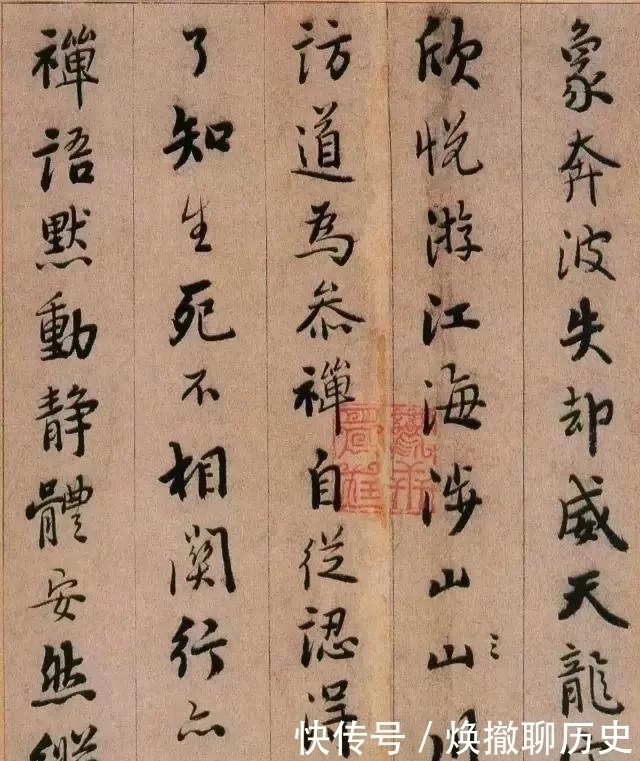 象奔波失却威天龍
欣悅游江海涉山山
訪道為叅禪自從認得
了知生死不相關行亦
禪語默動靜體安然縱
快传号 / 焕撤聊历史